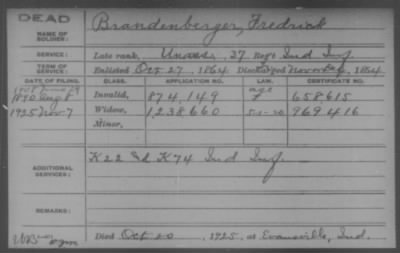 DEAD
NAME OF SOLDIER: Brandenberger, Fredrick
SERVICE: Late rank, Unass., 37 Reg't Ind Inf
TERM OF SERVICE: Enlisted Oct 27, 1864 Discharged 1864
DATE OF FILING. CLASS. APPLICATION NO. LAW. CERTIFICATE NO.
age
1890 Aug 8 Invalid, 874,149 658615
1925 Nov 7 Widow, 1,238,660 5-1-20 969416
Minor,
ADDITIONAL SERVICES: K 22 & K 74 Ind Inf
REMARKS:
Died Oct 20, 1925, at Evansville, Ind.